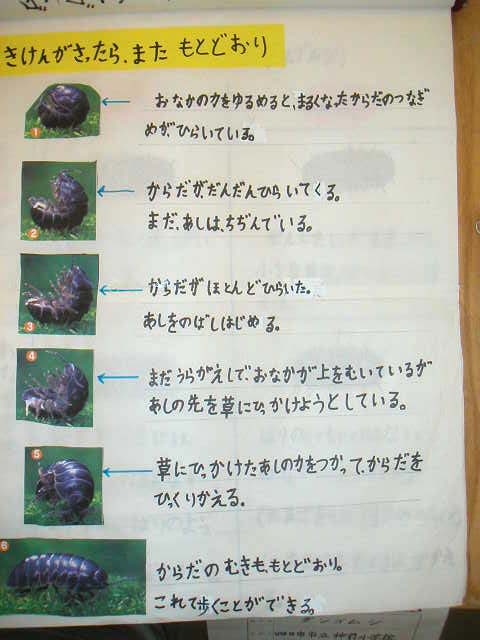 きけんがさったら、また もとどおり
1
おなかの力をゆるめると、まるくなったからだのつなぎ
めが、ひらいている。
2
からだが、だんだんひらいてくる。
まだ、あしは、ちぢんでいる。
3
からだが ほとんどひらいた。
あしをのばしはじめる。
4
まだうらがえしで、おなかが上をむいているが
あしの先を草にひっかけようとしている。
5
草にひっかけたあしの力をつかって、からだを
ひっくりかえる。
6
からだの むきも、もとどおり。
これで歩くことができる。
ダンゴムシ